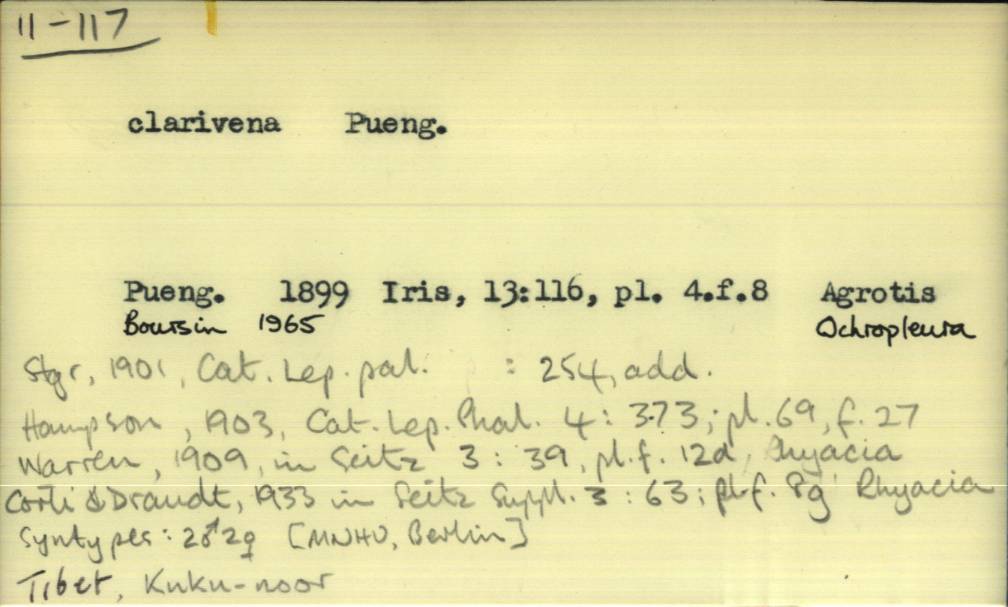 11-117
clarivena Pueng.
Pueng. 1899 Iris, 13:116, pl. 4.f.8 Agrotis
Boursin 1965 Ochropleura
Stgr, 1901, Cat. Lep. pal. : 254, add.
Hampson, 1903, Cat. Lep. Phal. 4: 373; pl. 69, f. 27
Warren, 1909, in Seitz 3: 39, pl.f. 12d, Rhyacia
Corti & Draudt, 1933 in Seitz Suppl. 3: 63; pl.f. 8g Rhyacia
Syntypes: 2♂ 2♀ [MNHU, Berlin]
Tibet, Kuku-noor